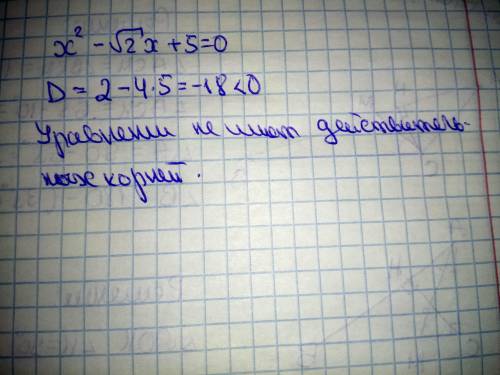 x² - √2x + 5 = 0
D = 2 - 4·5 = -18 < 0
Уравнении не имеют действитель-
ных корней.